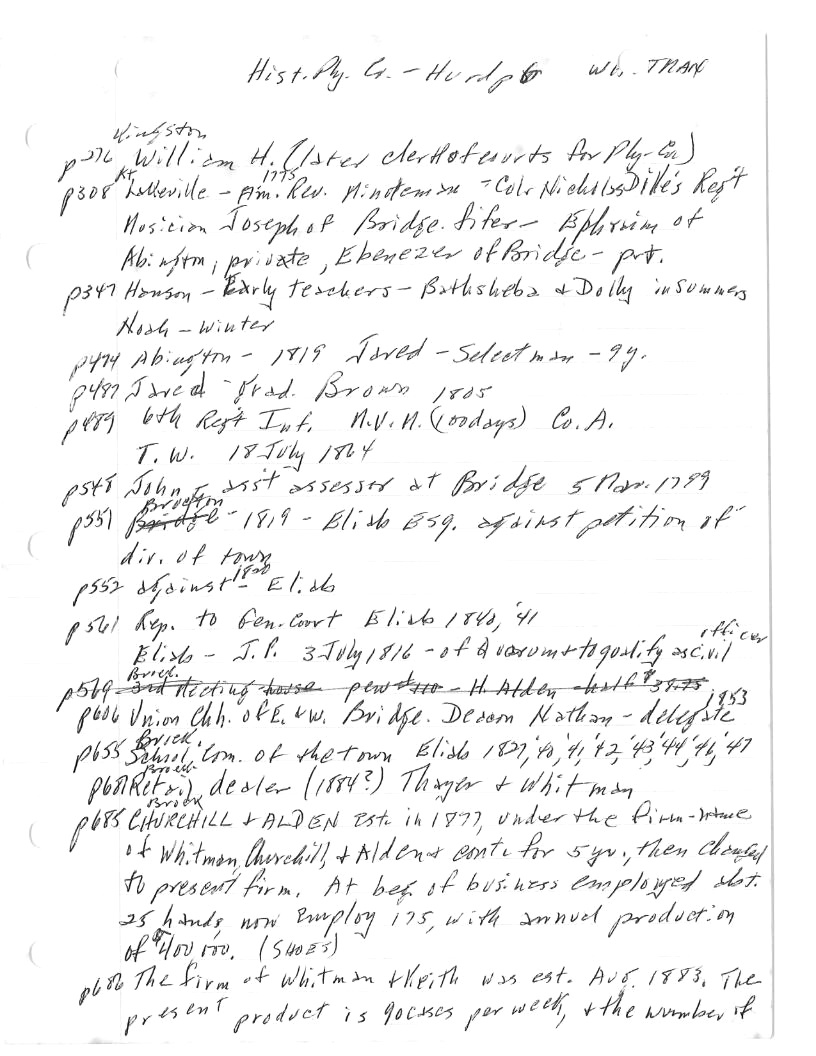 Hist. Ply. Co. - Hurd p6 Wt. TRAN
Kingston
p276 William H. (later clerk of courts for Ply. Co.)
p308 Lakeville - Am. Rev. 1775 Minuteman - Col. Nicholas Dike's Reg't
Musician Joseph of Bridge. fifer - Ephraim of
Abington, private, Ebenezer of Bridge - prt.
p347 Hanson - Early teachers - Bathsheba & Dolly in summers
Noah - winter
p474 Abington - 1819 Jared - Selectman - 9y.
p487 Jared - grad. Brown 1805
p489 6th Reg't Inf. M.V.M. (100 days) Co. A.
T. W. 18 July 1864
p548 John asst assessor at Bridge 5 Mar. 1799
Brockton
p551 Bridge - 1819 - Eliab Esq. against petition of
div. of town
p552 against - 1820 Eliab
p561 Rep. to Gen. Court Eliab 1840, '41
officer
Eliab - J. P. 3 July 1816 - of Quorum & to qualify as civil
Brock.
p569 3rd Meeting house pew #110 - H. Alden - half $38.75
1853
p606 Union Chh. of E. & W. Bridge. Deacon Nathan - delegate
Brock
p655 School Com. of the town Eliab 1827, '40, '41, '42, '43, '44, '46, '47
Brock
p681 Retail dealer (1884?) Thayer & Whitman
Brock
p685 CHURCHILL & ALDEN est. in 1877, under the firm-name
of Whitman, Churchill, & Alden & cont. for 5 yr., then changed
to present firm. At beg. of business employed abt.
25 hands, now employ 175, with annual production
of $400,000. (SHOES)
p686 The firm of Whitman & Keith was est. Aug. 1883. The
present product is 90 cases per week, & the number of